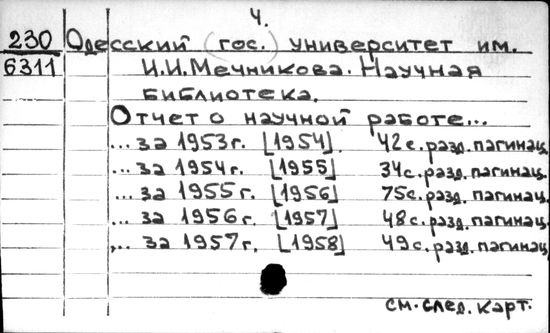 4.
230 Одесский (гос.) университет им.
6311 И.И.Мечникова. Научная
библиотека.
Отчет о научной работе...
... за 1953г. [1954] 42с.разд.пагинац.
... за 1954г. [1955] 34с.разд.пагинац.
... за 1955г. [1956] 75с.разд.пагинац.
... за 1956г. [1957] 48с.разд.пагинац.
... за 1957г. [1958] 49с.разд.пагинац.
см.след.карт.